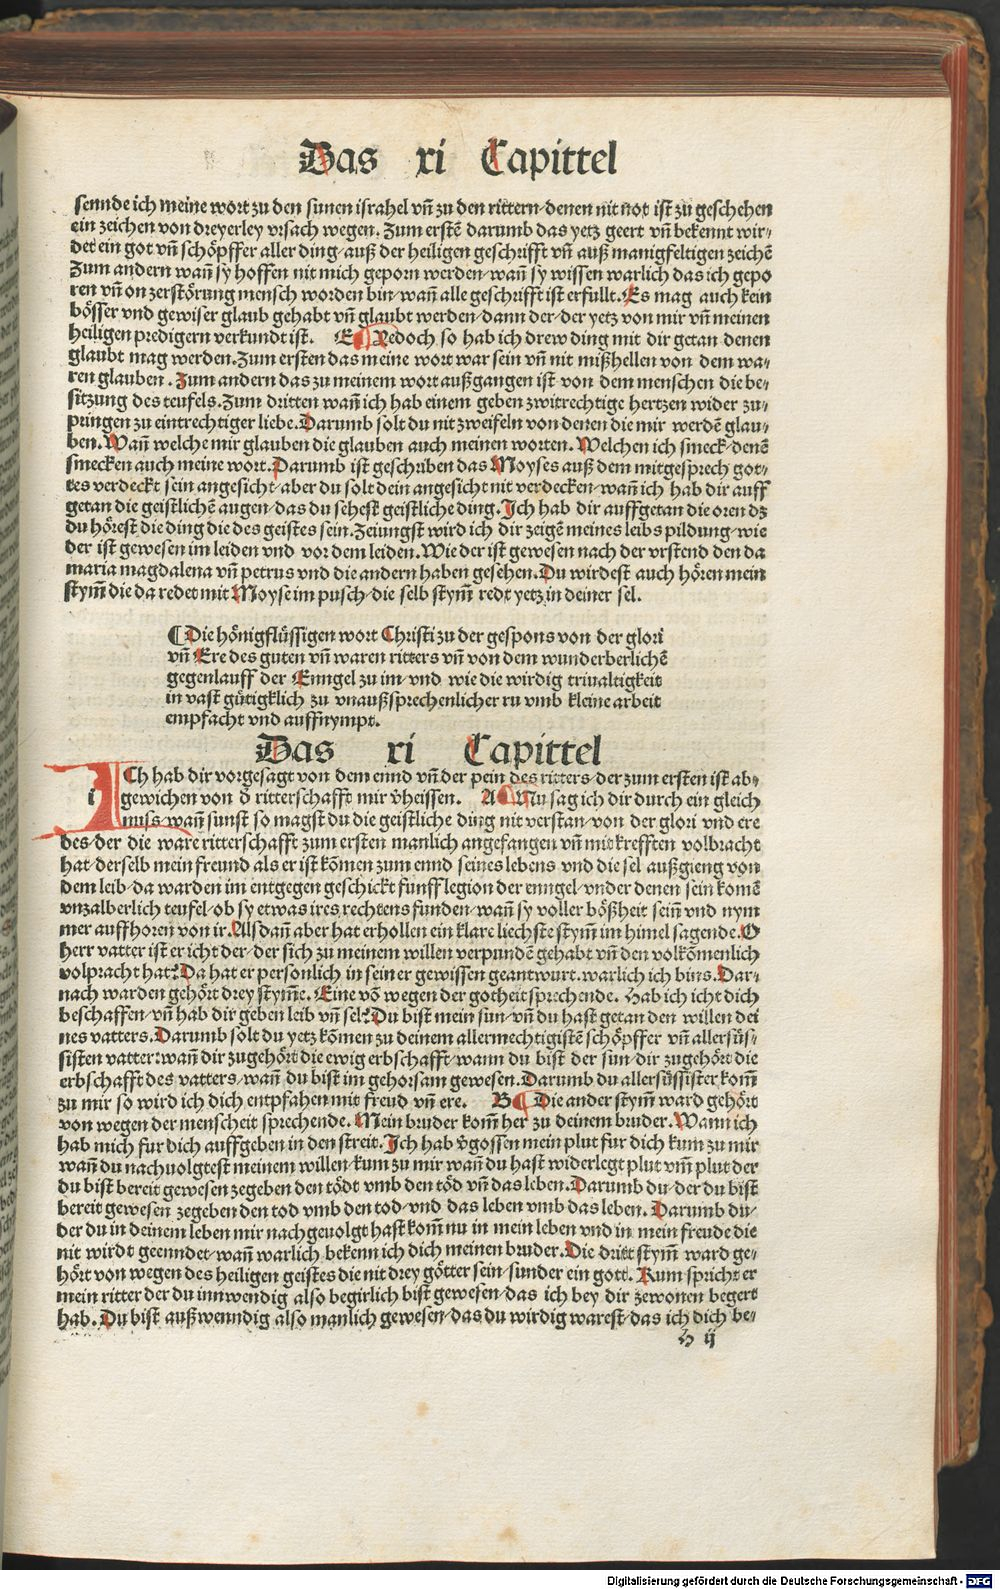 Das xi Capittel
sennde ich meine wort zu den sunen israhel vñ zu den rittern/denen nit not ist zu geschehen
ein zeichen von dreyerley vrsach wegen. Zum erstẽ darumb das yetz geert vñ bekennt wir/
det ein got vñ schöpffer aller ding/auß der heiligen geschrifft vñ auß manigfeltigen zeichẽ
Zum andern wañ sy hoffen nit mich geporn werden/wañ sy wissen warlich das ich gepo
ren vñ on zerstörung mensch worden bin/wañ alle geschrifft ist erfullt. Es mag auch kein
bösser vnd gewiser glaub gehabt vñ glaubt werden/dann der/der yetz von mir vñ meinen
heiligen predigern verkundt ist. E Yedoch so hab ich drew ding mit dir getan denen
glaubt mag werden. Zum ersten das meine wort war sein vñ nit mißhellen von dem wa/
ren glauben. Zum andern das zu meinem wort außgangen ist von dem menschen die be/
sitzung des teufels. Zum dritten wañ ich hab einem geben zwitrechtige hertzen wider zu/
pringen zu eintrechtiger liebe. Darumb solt du nit zweifeln von denen die mir werdẽ glau/
ben. Wañ welche mir glauben die glauben auch meinen worten. Welchen ich smeck/denẽ
smecken auch meine wort. Darumb ist geschriben das Moyses auß dem mitgesprech got/
tes verdeckt sein angesicht/aber du solt dein angesicht nit verdecken/wañ ich hab dir auff
getan die geistlichẽ augen/das du sehest geistliche ding. Ich hab dir auffgetan die oren dz
du hörest die ding die des geistes sein. Zeiungst wird ich dir zeigẽ meines leibs pildung/wie
der ist gewesen im leiden vnd vor dem leiden. Wie der ist gewesen nach der vrstend den da
maria magdalena vñ petrus vnd die andern haben gesehen. Du wirdest auch hören mein
stym̃ die da redet mit Moyse im pusch/die selb stym̃ redt yetz in deiner sel.
¶ Die hönigflüssigen wort Christi zu der gespons von der glori
vñ Ere des guten vñ waren ritters vñ von dem wunderberlichẽ
gegenlauff der Enngel zu im/vnd wie die wirdig triualtigkeit
in vast gütigklich zu vnaußsprechenlicher ru vmb kleine arbeit
empfacht vnd auffnympt.
Das xi Capittel
ICh hab dir vorgesagt von dem ennd vñ der pein des ritters/der zum ersten ist ab/
i gewichen von d̕ ritterschafft mir v̕heissen. A Nu sag ich dir durch ein gleich
nuss/wañ sunst so magst du die geistliche ding nit verstan/von der glori vnd ere
des/der die ware ritterschafft zum ersten manlich angefangen vñ mit krefften volbracht
hat/derselb mein freund als er ist kõmen zum ennd seines lebens vnd die sel außgieng von
dem leib/da warden im entgegen geschickt funff legion der enngel/vnder denen sein komẽ
vnzalberlich teufel/ob sy etwas ires rechtens funden/wañ sy voller bößheit seiñ vnd nym
mer auffhoren von ir. Alsdañ aber hat erhollen ein klare liechste stym̃ im himel sagende. O
herr vatter ist er icht der/der sich zu meinem willen verpundẽ gehabt vñ den volkõmenlich
volpracht hat? Da hat er personlich in seiner gewissen geantwurt. warlich ich bins. Dar/
nach warden gehört drey stym̃e. Eine võ wegen der gotheit sprechende. Hab ich icht dich
beschaffen/vñ hab dir geben leib vñ sel? Du bist mein sun/vñ du hast getan den willen dei
nes vatters. Darumb solt du yetz kõmen zu deinem allermechtigistẽ schöpffer vñ allersüs/
sisten vatter: wañ dir zugehört die ewig erbschafft/wann du bist der sun/dir zugehört die
erbschafft des vatters/wañ du bist im gehorsam gewesen. Darumb du allersüssister kom̃
zu mir so wird ich dich entpfahen mit freud vñ ere. B Die ander stym̃ ward gehört
von wegen der menscheit sprechende. Mein bruder kom̃ her zu deinem bruder. Wann ich
hab mich fur dich auffgeben in den streit. Ich hab v̕gossen mein plut fur dich kum zu mir
wañ du nachuolgtest meinem willen/kum zu mir wañ du hast widerlegt plut vm̃ plut der
du bist bereit gewesen zegeben den tödt vmb den töd vñ das leben. Darumb du/der du bist
bereit gewesen zegeben den tod vmb den tod/vnd das leben vmb das leben. Darumb du/
der du in deinem leben mir nachgeuolgt hast kom̃ nu in mein leben vnd in mein freude die
nit wirdt geenndet/wañ warlich bekenn ich dich meinen bruder. Die dritt stym̃ ward ge/
hört von wegen des heiligen geistes die nit drey götter sein/sunder ein gott. Kum spricht er
mein ritter der du innwendig also begirlich bist gewesen/das ich bey dir zewonen begert
hab. Du bist außwenndig also manlich gewesen/das du wirdig warest/das ich dich be/
H ij
Digitalisierung gefördert durch die Deutsche Forschungsgemeinschaft - DFG